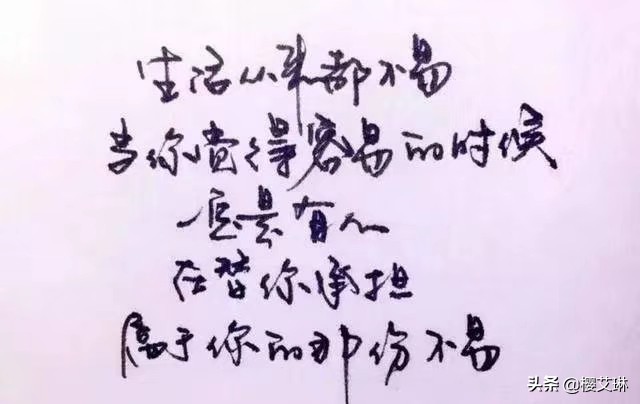 生活从来都不易
当你觉得容易的时候
一定是有人
在替你承担
属于你的那份不易
头条@樱艾琳